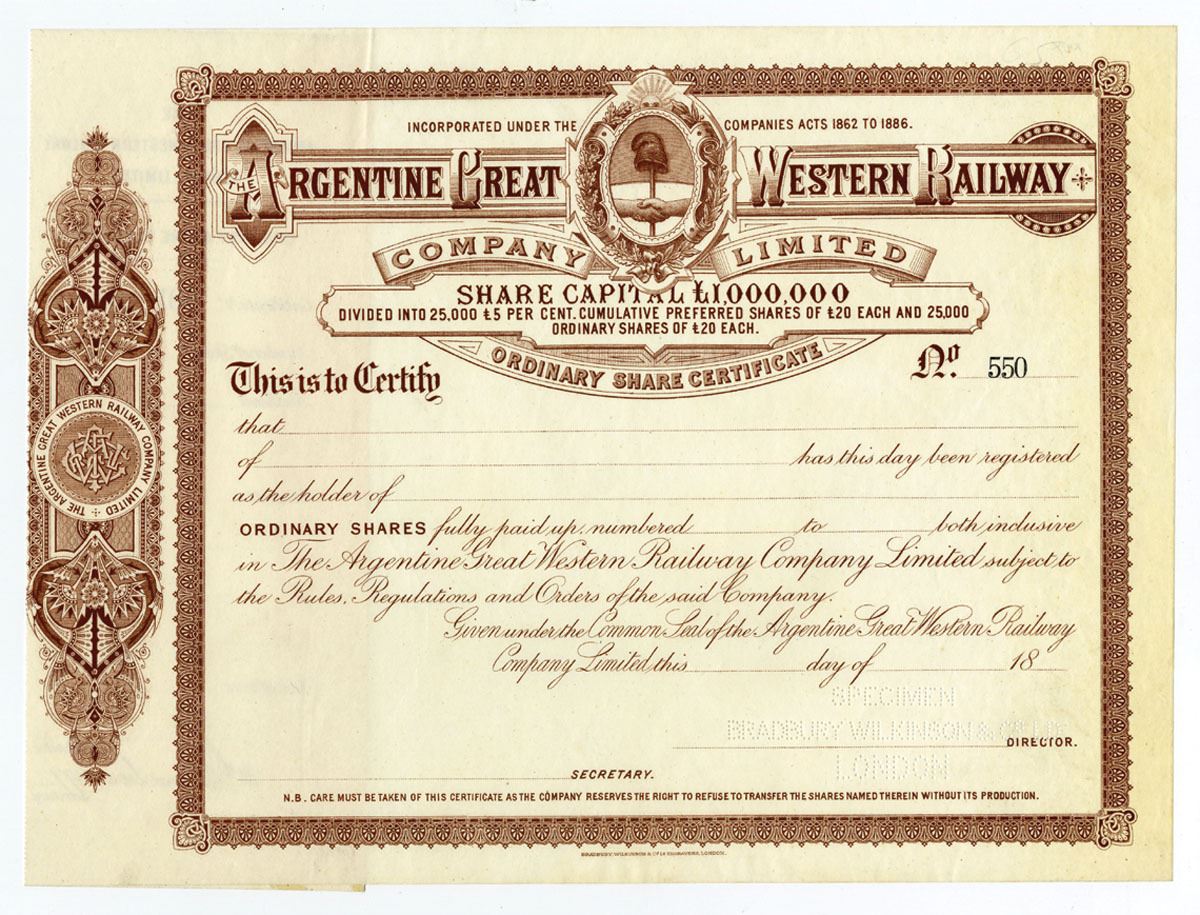 INCORPORATED UNDER THE COMPANIES ACTS 1862 TO 1886.
THE ARGENTINE GREAT WESTERN RAILWAY
COMPANY LIMITED
SHARE CAPITAL £1,000,000
DIVIDED INTO 25,000 £5 PER CENT. CUMULATIVE PREFERRED SHARES OF £20 EACH AND 25,000
ORDINARY SHARES OF £20 EACH.
ORDINARY SHARE CERTIFICATE
This is to Certify
No. 550
that
of has this day been registered
as the holder of
ORDINARY SHARES fully paid up, numbered to both inclusive
in The Argentine Great Western Railway Company Limited subject to
the Rules, Regulations and Orders of the said Company.
Given under the Common Seal of the Argentine Great Western Railway
Company Limited this day of 18
SPECIMEN
BRADBURY WILKINSON & Co. LTD
LONDON
DIRECTOR.
SECRETARY.
N.B. CARE MUST BE TAKEN OF THIS CERTIFICATE AS THE COMPANY RESERVES THE RIGHT TO REFUSE TO TRANSFER THE SHARES NAMED THEREIN WITHOUT ITS PRODUCTION.
BRADBURY, WILKINSON & Co. Ld ENGRAVERS, LONDON.
THE ARGENTINE GREAT WESTERN RAILWAY COMPANY LIMITED